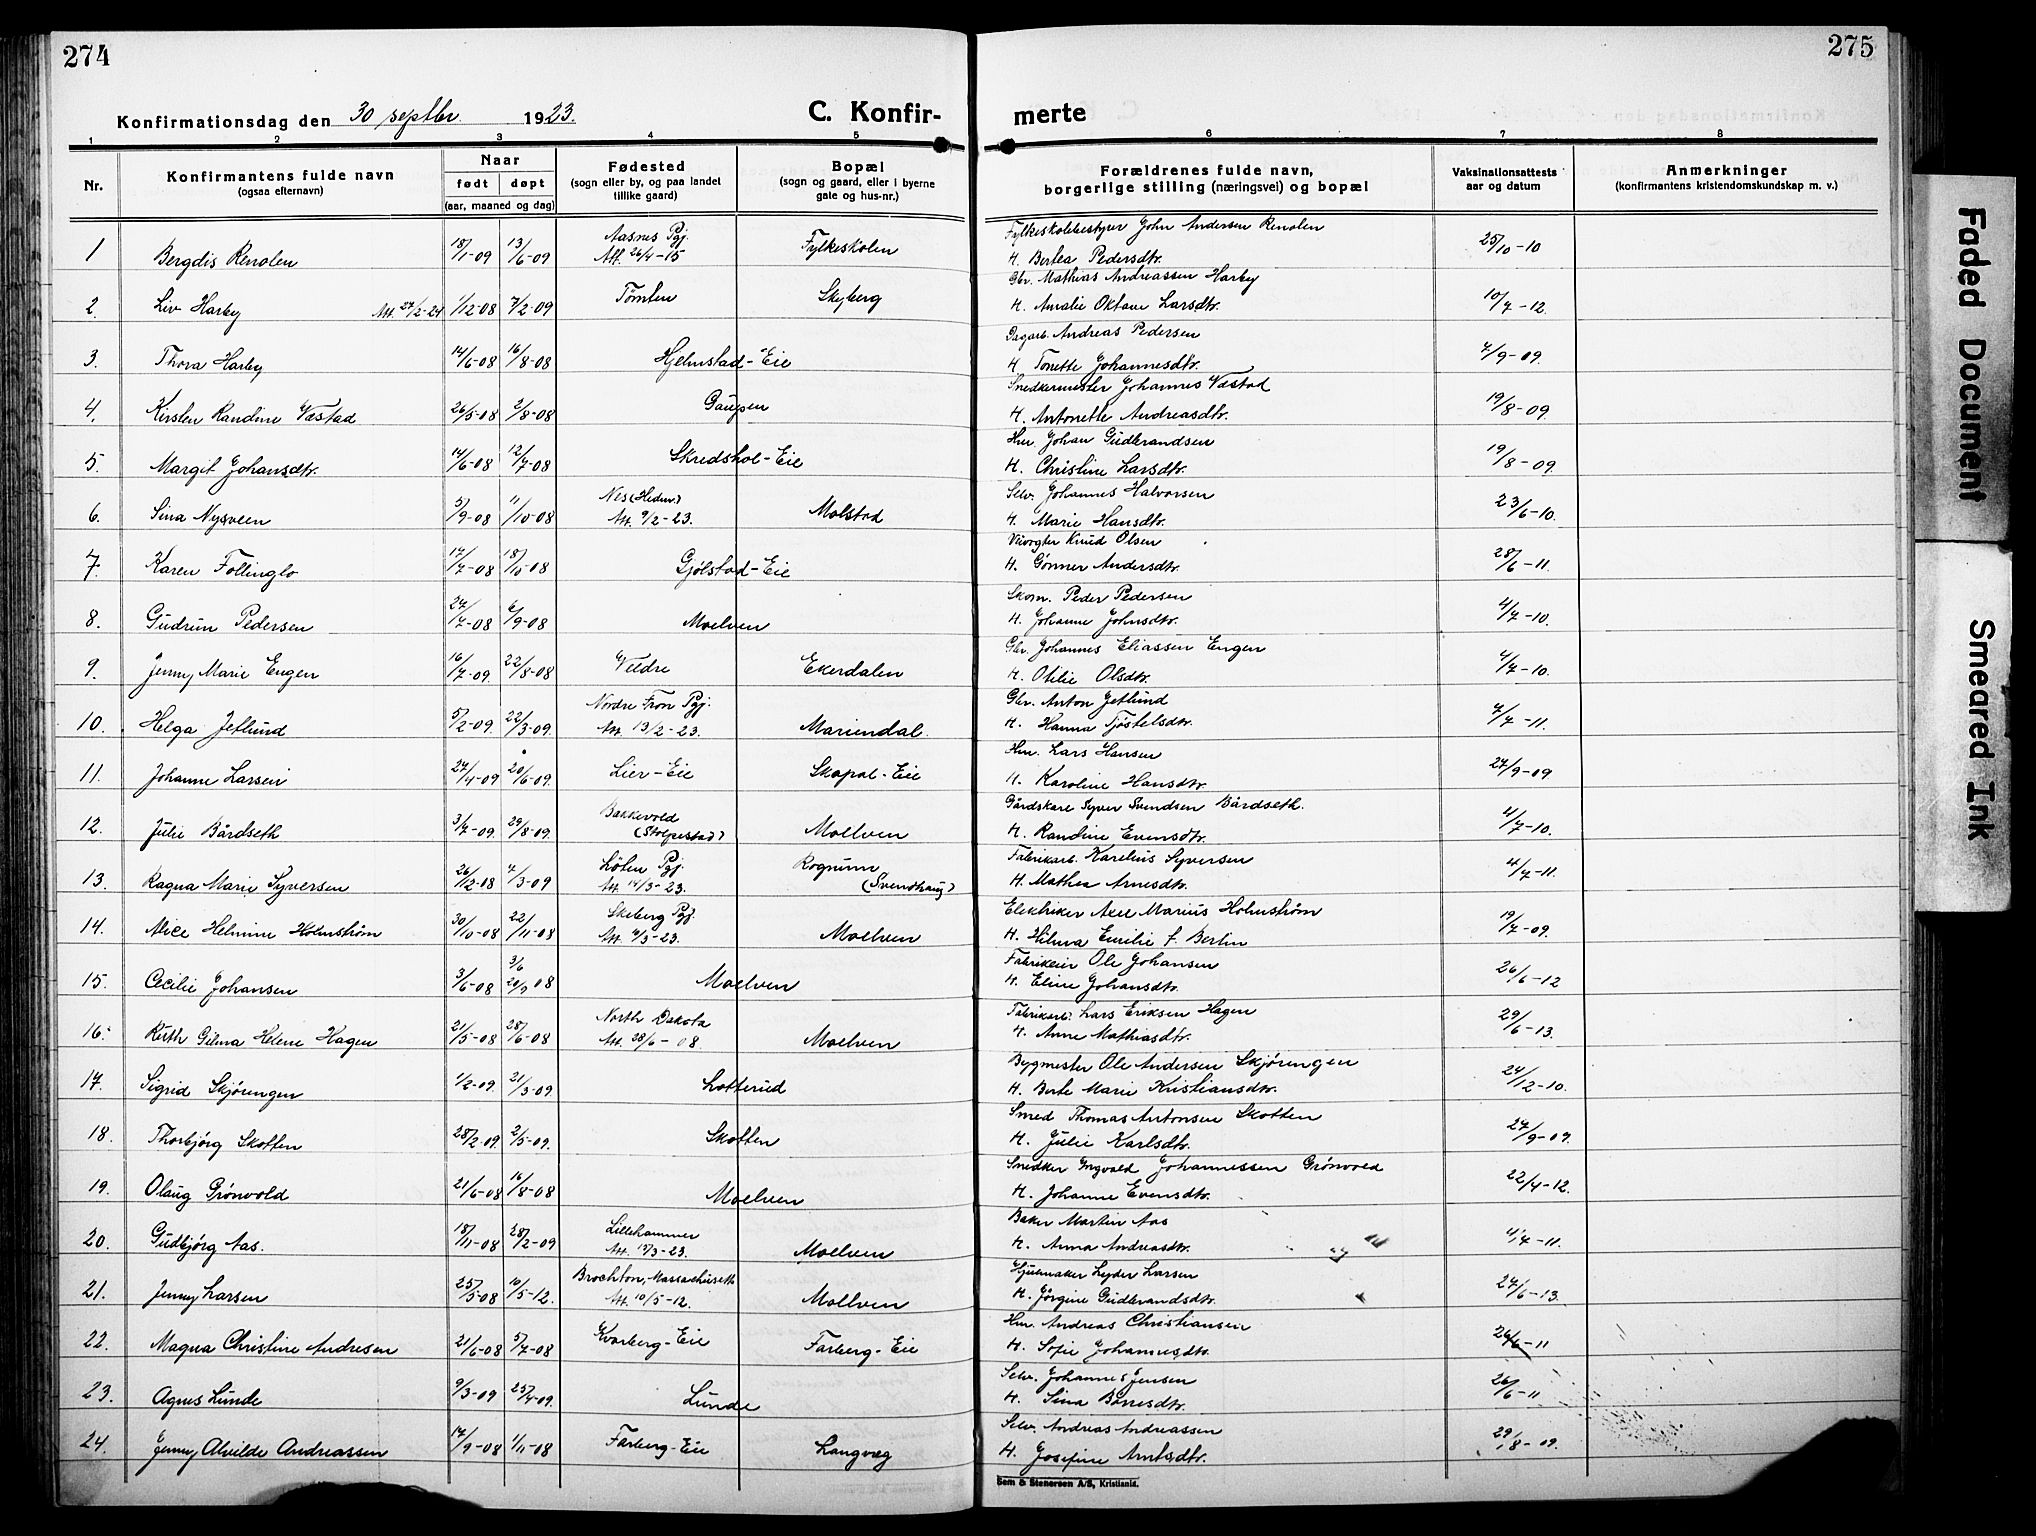 274
275
Konfirmationsdag den 30 septbr. 1923.
C. Konfir-
merte
1 2 3 4 5 6 7 8
Nr.
Konfirmantens fulde navn
(ogsaa efternavn)
Naar
født døpt
(aar, maaned og dag)
Fødested
(sogn eller by, og paa landet
tillike gaard)
Bopæl
(sogn og gaard, eller i byerne
gate og hus-nr.)
Forældrenes fulde navn,
borgerlige stilling (næringsvei) og bopæl
Vaksinationsattests
aar og datum
Anmerkninger
(konfirmantens kristendomskundskap m. v.)
Aasnes Pgj. Fylkeskolebestyrer John Andersen Renolen
1 Bergdis Renolen 18/1-09 13/6-09 Att. 26/4-15 Fylkeskolen H. Bertea Pedersdtr. 25/10-10
Gbr. Mathias Andreassen Harby
2. Liv Harby Att. 27/2-24 1/12-08 7/2-09 Tömten Skyberg H. Amalie Oktave Larsdtr. 10/7-12.
Dagarb. Andreas Pedersen
3. Thora Harby 14/6-08 16/8-08 Hjelmstad-Eie H Tonette Johannesdtr. 7/9-09.
Snedkermester Johannes Væstad
4. Kirsten Randine Væstad 26/5-08 2/8-08 Gaupen H. Antonette Andreasdtr. 19/8-09
Hm. Johan Gudbrandsen
5. Margit Johansdtr. 14/6-08 12/7-08 Skredshol-Eie H. Christine Larsdtr. 19/8-09.
Nes (Hedm.) Selv. Johannes Halvorsen
6. Sina Nysveen 5/9-08 11/10-08 Att. 9/2-23. Molstad H. Marie Hansdtr. 23/6-10.
Veivogter Knud Olsen
7. Karen Follinglo 17/7-08 18/10-08 Gjölstad-Eie H. Gönner Andersdtr. 28/6-11.
Skom. Peder Pedersen
8. Gudrun Pedersen 27/7-08 6/9-08 Moelven H. Johanne Johnsdtr. 4/7-10.
Gbr. Johannes Eliassen Engen
9. Jenny Marie Engen 16/7-09. 22/8-08 Veldre Ekerdalen H. Otilie Olsdtr. 4/7-10.
Nordre Fron Pgj. Gbr. Anton Jetlund
10. Helga Jetlund 5/2-09. 22/3-09. Att. 13/2-23. Mariendal. H. Hanna Tjöstelsdtr. 7/7-11.
Hm. Lars Hansen
11. Johanne Larsen 27/4-09 20/6-09. Lier-Eie Skapal-Eie H. Karoline Hansdtr. 27/9-09
Bakkevold Gårdskarl Syver Svendsen Bårdseth.
12. Julie Bårdseth 3/7-09. 29/8-09. (Stolpestad) Moelven H. Randine Evensdtr. 4/7-10.
Löten Pgj. Rognum Fabrikarb. Karelius Syversen
13. Ragna Marie Syversen 26/12-08 7/3-09 Att. 14/3-23. (Svendhaug) H. Mathea Arnesdtr. 4/7-11.
Skeberg Pgj. Elektriker Axel Marius Holmström
14. Alice Helmine Holmström 30/10-08 22/11-08 Att. 6/3-23. Moelven H. Hilma Emilie f. Berlin 19/7-09.
3/6 Fabrikeier Ole Johansen
15. Cecilie Johansen 3/6-08 20/9 08 Moelven H. Eline Johansdtr. 26/6-12
North Dakota Fabrikarb. Lars Eriksen Hagen
16. Ruth Gilma Helene Hagen 21/5-08 28/6-08 Att. 28/6-08. Moelven H. Anne Mathiasdtr. 29/6-13.
Bygmester Ole Andersen Skjörungen
17. Sigrid Skjörungen 1/2-09. 21/3-09. Lotterud H. Berte Marie Kristiansdtr. 24/12-10.
Smed Thomas Antonsen Skotten
18. Thorbjörg Skotten 28/2-09. 2/5-09. Skotten H. Julie Karlsdtr. 27/9-09.
Snedker Ingvald Johannessen Grönvold
19. Olaug Grönvold 21/6-08 16/8-08 Moelven H. Johanne Evensdtr. 22/4-12.
Lillehammer Baker Martin Aas
20. Gudbjörg Aas. 18/11-08 28/2-09 Att. 13/3-23. Moelven H. Anna Andreasdtr. 4/4-11.
Brockton, Massachusett Hjulmaker Lyder Larsen
21. Jenny Larsen 25/5-08 10/5-12. Att. 10/5-12. Moelven H. Jörgine Gudbrandsdtr. 27/6-13.
Hm. Andreas Christiansen
22. Magna Christine Andresen 21/6-08 5/7-08 Kvarberg-Eie Farberg-Eie H. Sofie Johannesdtr. 26/6-11
Selv. Johannes Jensen
23. Agnes Lunde 9/3-09 25/4-09. Lunde H. Sina Börresdtr. 26/6-11
Selv. Andreas Andreassen
24. Jenny Alvilde Andreassen 17/9-08 1/11-08 Farberg-Eie Langvæg H. Josefine Arntsdtr. 29/8-09.
Sem & Stenersen A/S, Kristiania.
Faded Document
Smeared Ink